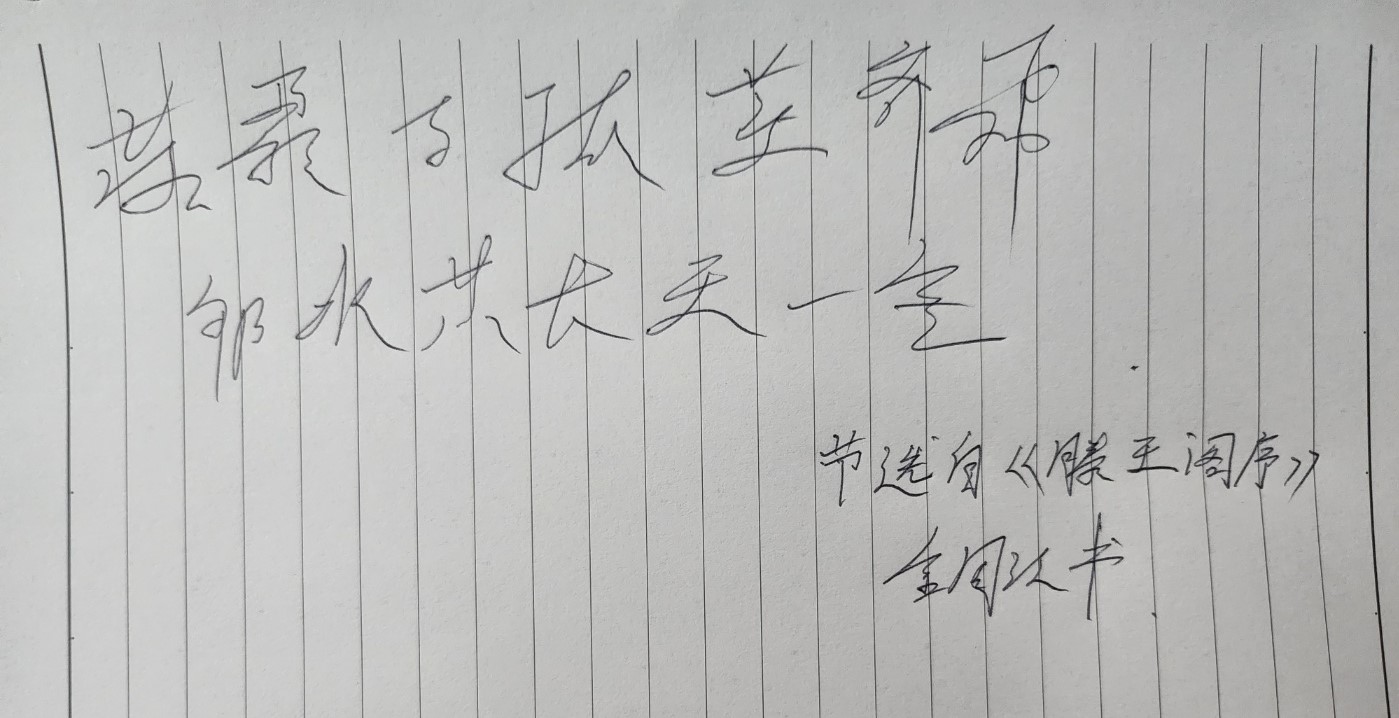 落霞与孤鹜齐飞
秋水共长天一色
节选自《滕王阁序》
书